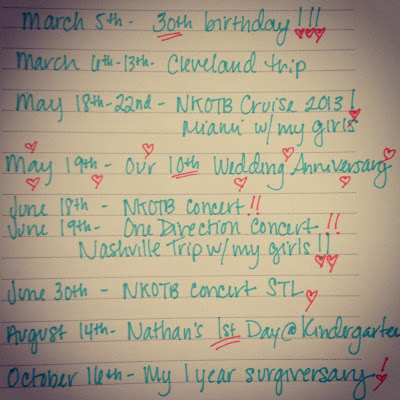 March 5th - 30th birthday!!!
March 6th-13th- Cleveland trip
May 18th-22nd - NKOTB Cruise 2013!
Miami w/my girls
May 19th - Our 10th Wedding Anniversary
June 18th - NKOTB Concert!!
June 19th - One Direction Concert!!
Nashville Trip w/my girls!!
June 30th - NKOTB Concert STL
August 14th- Nathan's 1st Day@Kindergarten
October 16th- My 1 year surgiversary!